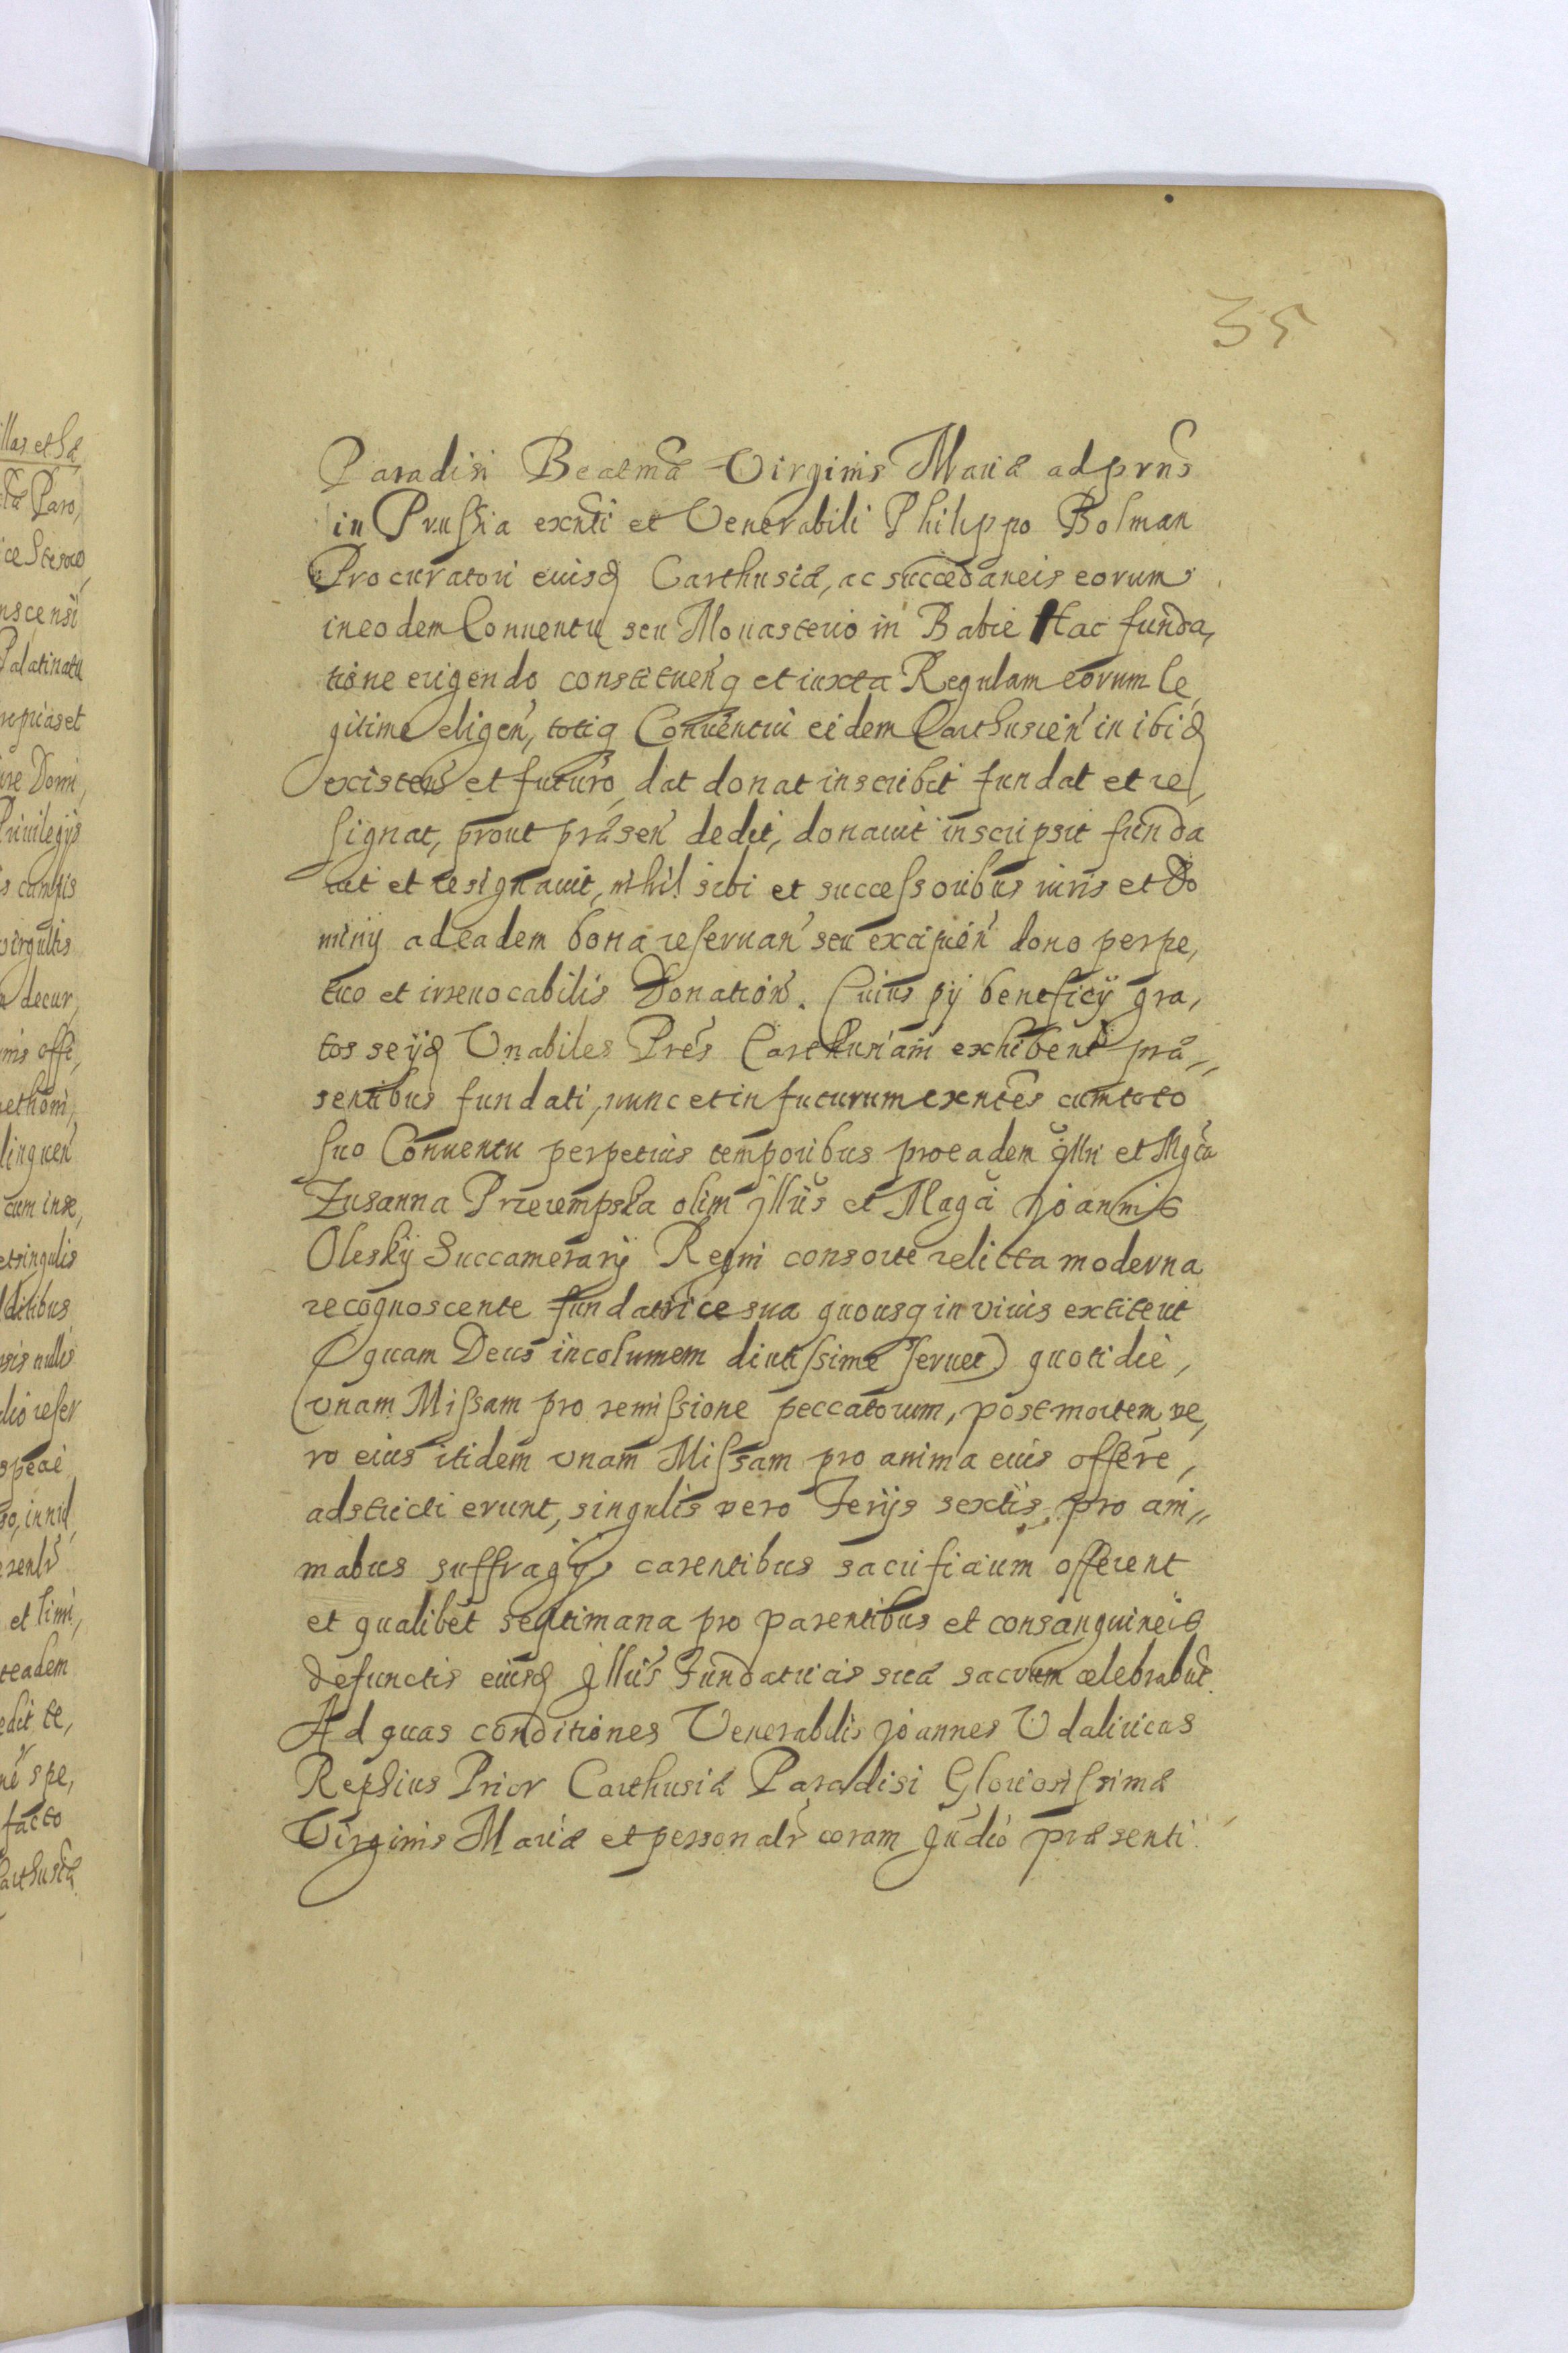 35
Paradisi Beatmæ Virginis Mariæ ad prns
in Prussia exnti et Venerabili Philippo Bolman
Procuratori euisq Carthusiæ, ac succedaneis eorum
in eodem Conuentu seu Monasterio in Babie Hac funda,
tione erigendo constituen q et iuxta Regulam eorum le,
gitime eligen, totiq Conuentui eidem Carthusien in ibiq
existen et futuro, dat donat inscribit fundat et re,
signat, prout præsen dedit, donauit inscripsit funda
uit et resignauit, nihil sibi et successoribus iuris et Do
minij ad eadem bona reseruan seu excipien dono perpe,
tuo et irreuocabilis Donation. Cuius pij beneficij gra,
tos se ijq Vnabiles Pres Carthusiam exhibent præ,,
sentibus fundati, nunc et in futurum exntes cum toto
suo Conuentu perpetuis temporibus pro eadem Illri et Mgca
Zusanna Przerempska olim Illris et Magci Joannis
Olesky Succamerarij Regni consorte relicta moderna
recognoscente fundatrice sua quousq in viuis extiterit
(quam Deus incolumem diutissime seruet) quotidie,
vnam Missam pro remissione peccatorum, post mortem ve,
ro eius itidem vnam Missam pro anima eius offere,
adstricti erunt, singulis vero Ferijs sextis, pro ani,,
mabus suffragijs carentibus sacrificium offerent
et qualibet septimana pro parentibus et consanguineis
defunctis eiusq Illris Fundatricis suæ sacrum celebrabut.
Ad quas conditiones Venerabilis Joannes Vdalricus
Rephius Prior Carthusiæ Paradisi Gloriosissimæ
Virginis Mariæ et personalr coram Judio præsenti